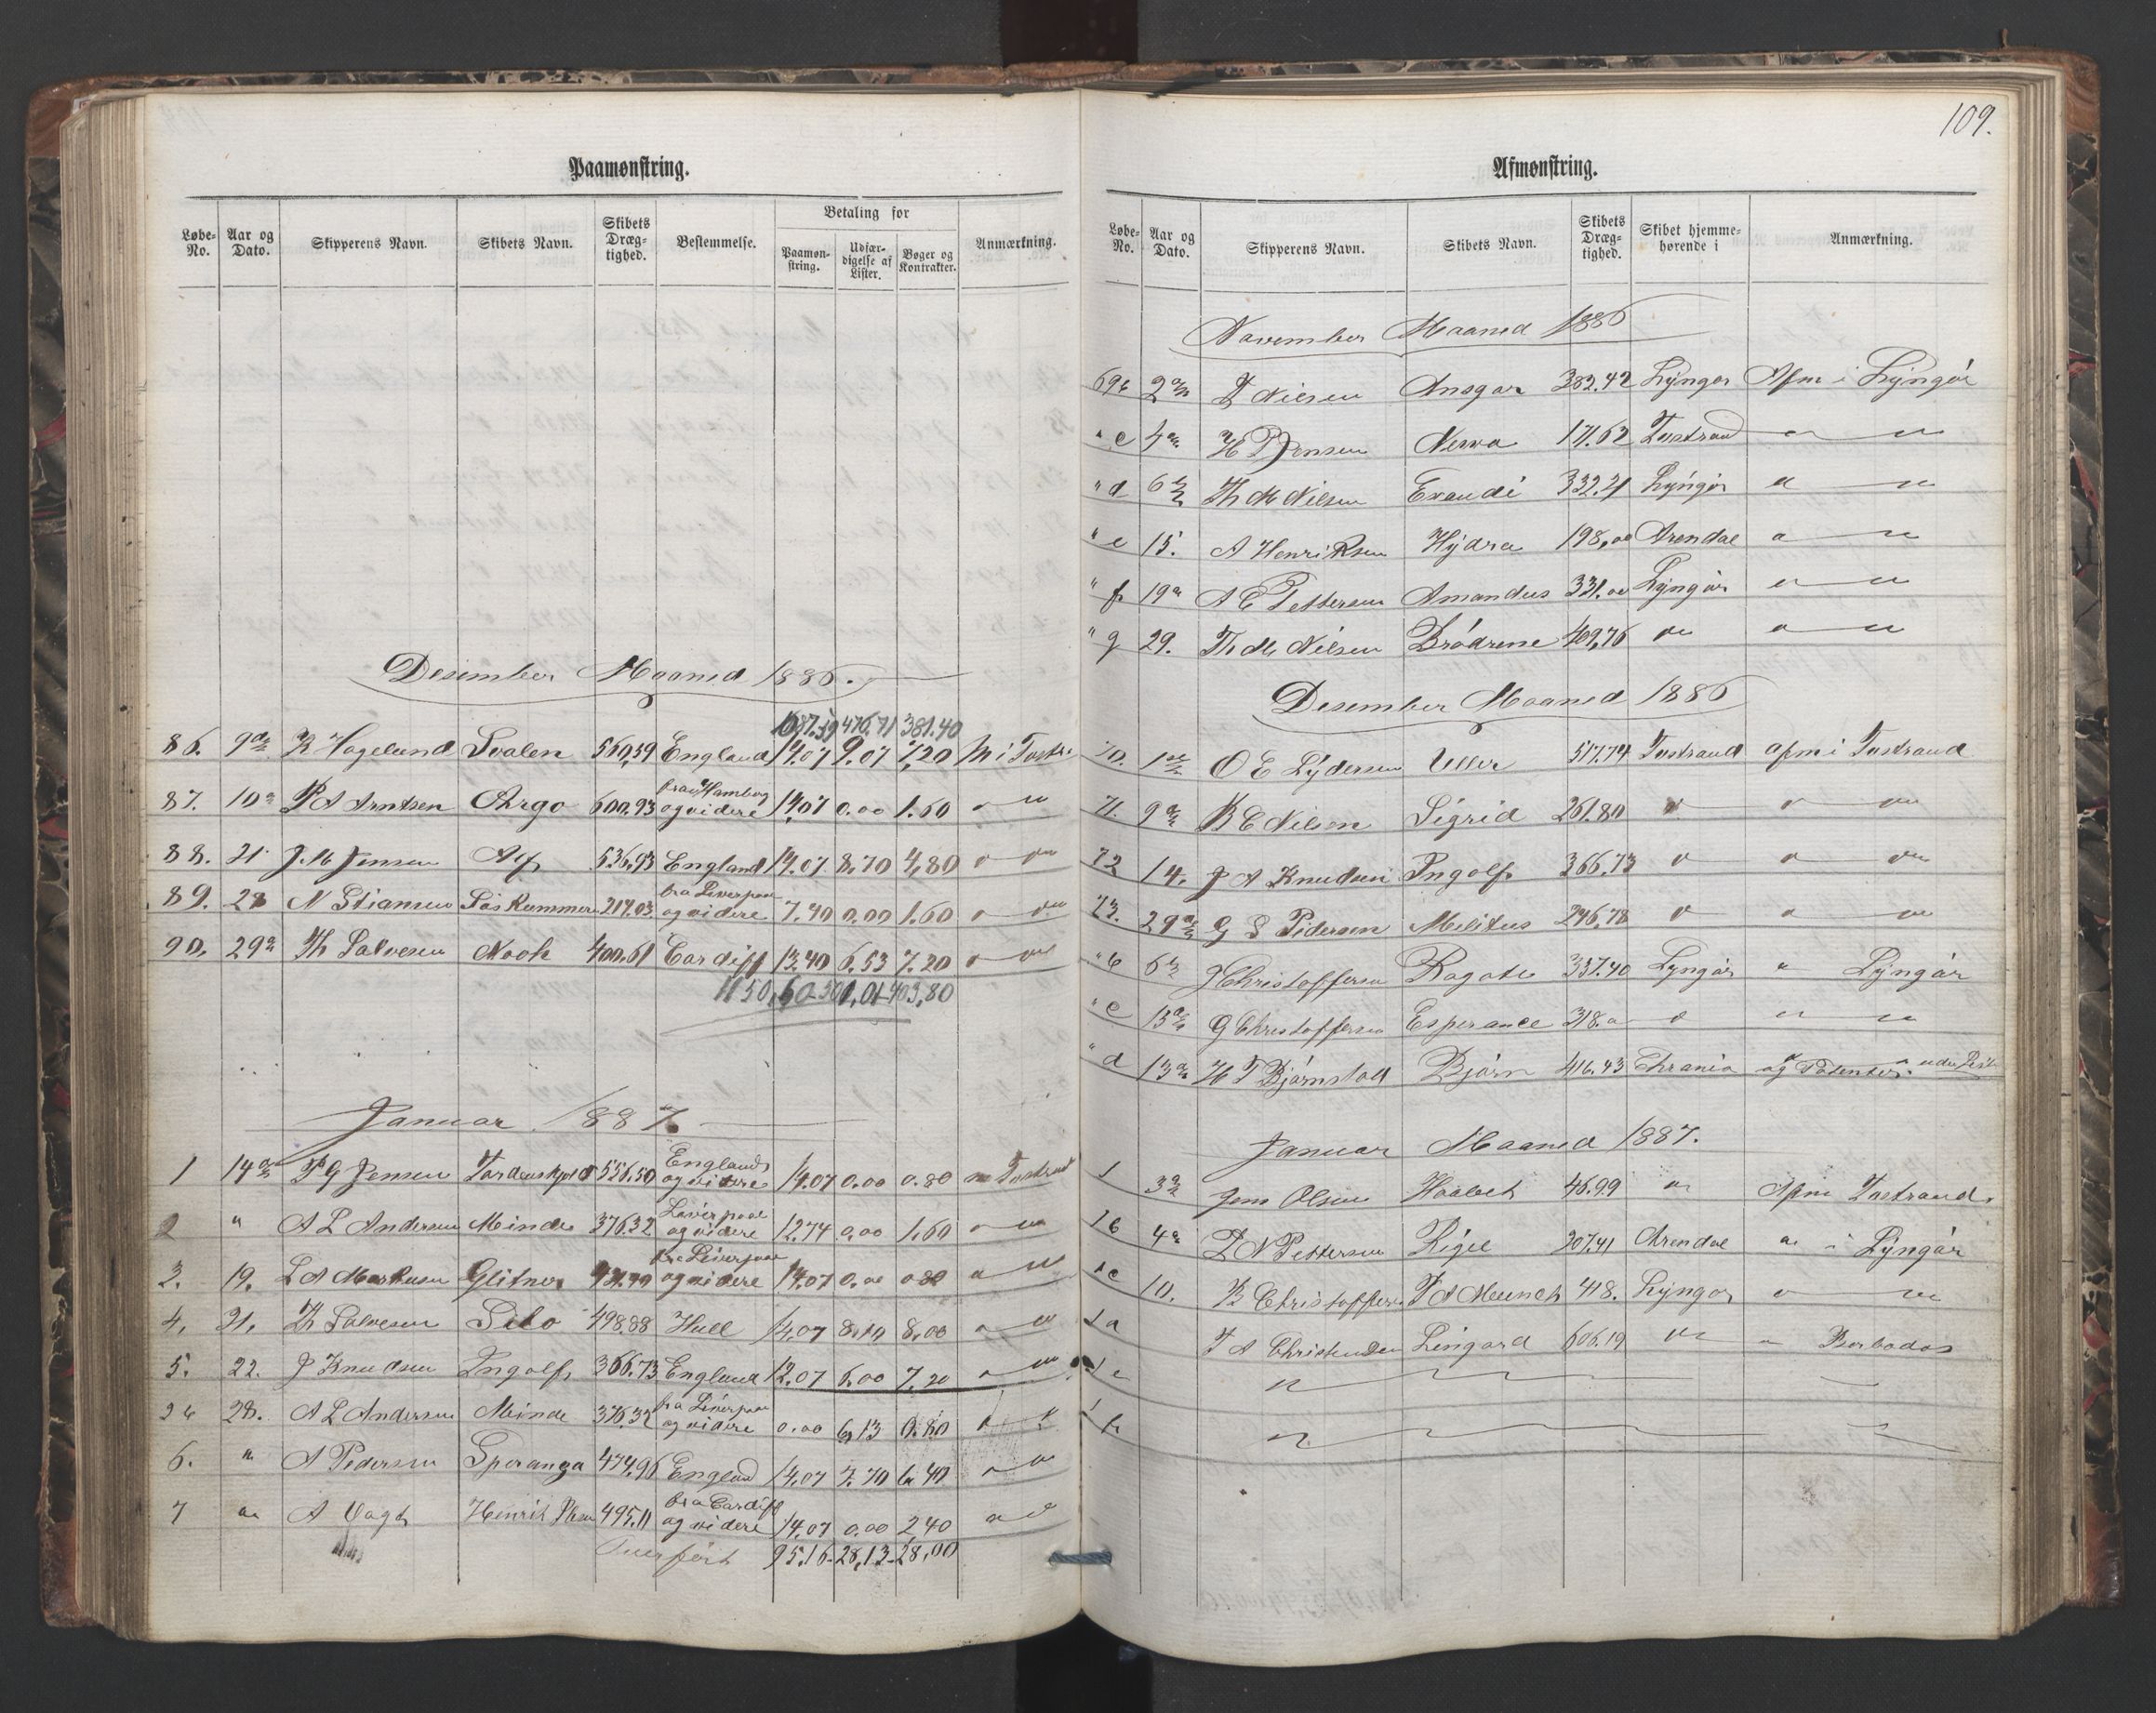 109.
Paamønstring.
Løbe-No. Aar og Dato. Skipperens Navn. Skibets Navn. Skibets Dræg-tighed. Bestemmelse. Betaling for Paamøn-string. Udfær-digelse af Lister. Bøger og Kontrakter. Anmærkning.
Desember Maaned 1886.
1087.39 476,71 381.40
86. 9de K Hagelund Svalen 560,59 England 14.07 9.07 7,20 M i Tvestr
87. 10 P A Arntsen Argo 600,93 fra Hamborg og videre 14,07 0.00 1.60
88. 21 J. M Jensen Alf 536,93 England 14.07 8,70 4,80
89. 28 N Stiansen 214.03 fra Liverpool og videre 7,40 0,00 1.60
90. 29 Th Salvesen Noah 400.61 Cardiff 13.40 6.53 7.20
1150,60 501,01 403,80
Januar 1887.
1 14 P G Jensen Tordenskjold 556.50 England og videre 14.07 0.00 0.80 Tvestrand
2 " A L Andersen Minde 376.32 Liverpool og videre 12.74 0,00 1,60
3. 19. L A Markusen Glitner fra Liverpool og videre 14,07 0,00 0 80
4. 21. Th Salvesen 498.88 Hull 14,07 8,19 8,00
5. 22. J Knudsen Ingolf 366.73 England 12.07 6.00 7.20
2 b 28. A L Andersen Minde 376.32 fra Liverpool og videre 0.00 6,13 0.80
6. " A Pedersen Speranza 474,96 England 14,07 7.70 6 40
7 " A Vogt Henrik Ibsen 495.11 fra Cardiff og videre 14,07 0.00 2,40
Overført 95.16 28,13 28,00
Afmønstring.
Løbe-No. Aar og Dato. Skipperens Navn. Skibets Navn. Skibets Dræg-tighed. Skibet hjemme-hørende i Anmærkning.
November Maaned 1886
69 b 2 Nielsen Ansgar 382.42 Lyngør Afm i Lyngør
" c 4 H P Jensen Nerva 171.62 Tvestrand
" d 6 Th M Nilsen Exaudi 332.21 Lyngør
" e 15. A Henriksen Hydra 198,00 Arendal
" f 19 A E Pettersen Amandus 331.00 Lyngør
" g 29. Th M Nilsen Brødrene 409,76
Desember Maaned 1886
70. 1 O E Lydersen Uller 517.74 Tvestrand afm i Tvestrand
71. 9 K E Nilsen Sigrid 261.80
72 14. J A Knudsen Ingolf 366.73
73. 29 G S Pedersen Militus 246,78
" b 6 J Christoffersen 337.40 Lyngør Lyngør
" c 13 G Christoffersen Esperance 318.
" d 13 H T Bjørnstad Bjørn 416.43 Chrania
Januar Maaned 1887.
1 3 Jens Olsen Haabet 46.99 Afm Tvestrand.
1 b 4 N Pettersen Rigel 207.41 Arendal i Lyngør
1 c 10. K Christoffersen P A Munch 418. Lyngør
1 d T A Christensen Lingard 606.19 Barbados
1 e
1 f